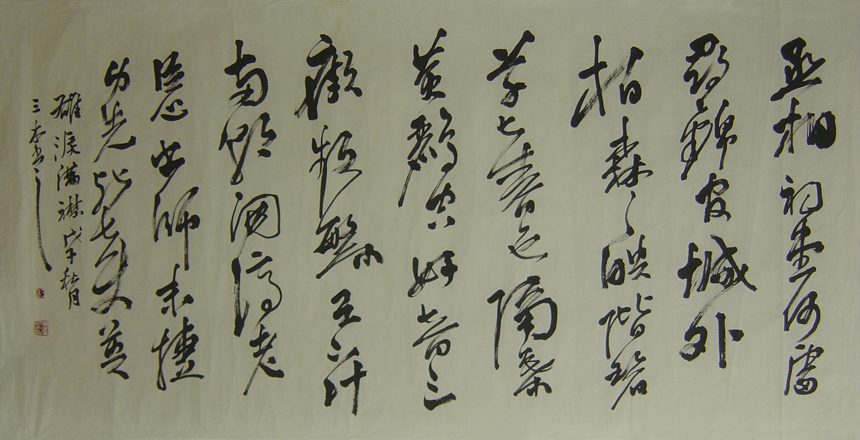 丞相祠堂何處
尋錦官城外
柏森々映階碧
草自春色隔葉
黃鸝空好音三
顧頻繁天下計
兩朝開濟老
臣心出師未捷
身先死長使英
雄淚滿襟戊秋月
三書